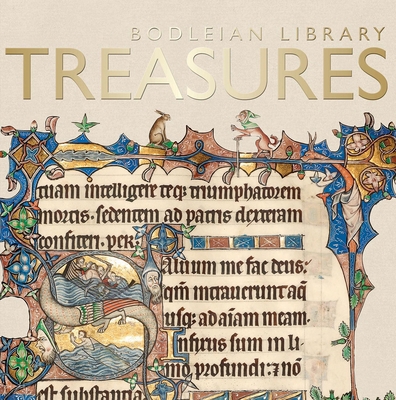 BODLEIAN LIBRARY
TREASURES
tuam intelligere teq; triumphatorem
mortis · sedentem ad patris dexteram
confiteri · per·
Saluum me fac deus:
qm̄ intrauerunt aq̄
usq; ad aīam meam·
Infixus sum in li
mo profundi: ⁊ nō
est substantia